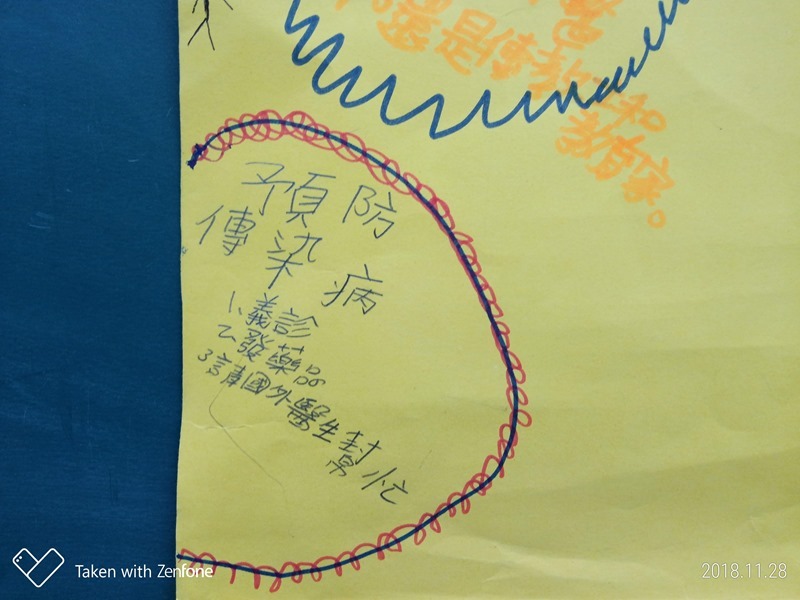 還是傳教士和
教育家。
預防
傳染病
1、義診
2、發藥品
3請國外醫生幫忙
Taken with Zenfone
2018.11.28